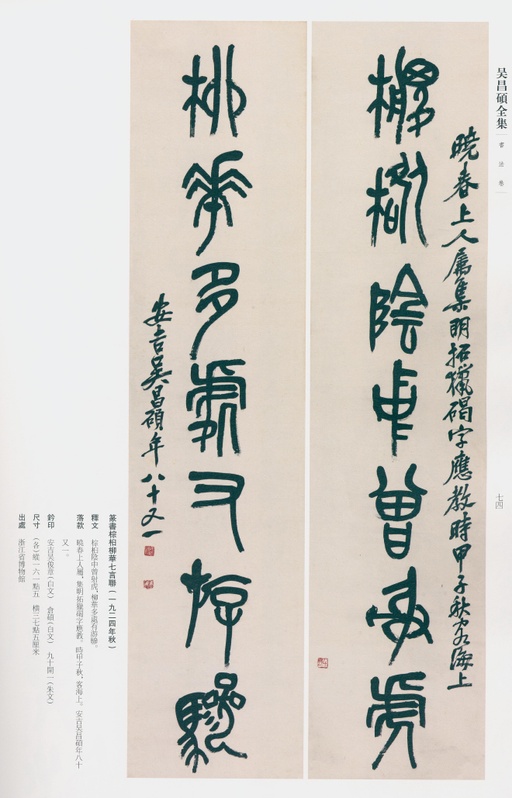 吴昌碩全集 書法卷
七四
曉春上人屬集明拓獵碣字應教時甲子秋客海上
椶桕陰中曾射虎
柳華多處又斿驂
安吉吳昌碩年八十又一
篆書棕桕柳華七言聯(一九二四年秋)
釋文 棕桕陰中曾射虎,柳華多處有游驂。
落款 曉春上人屬,集明拓獵碣字應教。時甲子秋,客海上。安吉吳昌碩年八十
又一。
鈐印 安吉吳俊章(白文) 倉碩(白文) 九十開一(朱文)
尺寸 (各)縱一六一點五 橫三七點五厘米
出處 浙江省博物館